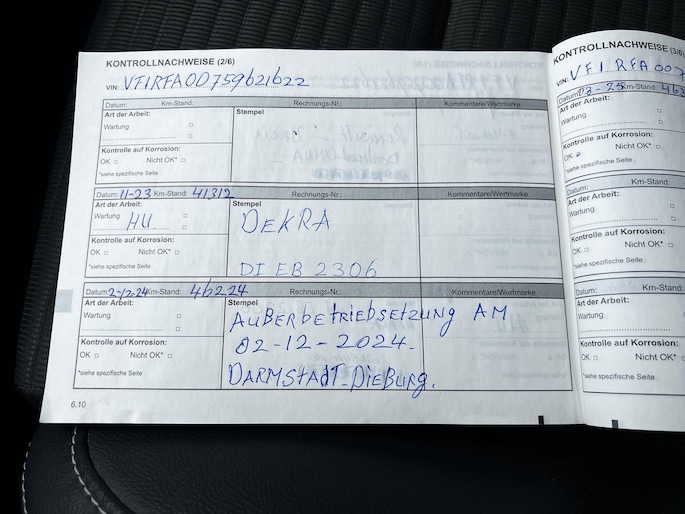 KONTROLLNACHWEISE (2/6)
VIN: VF1RFA00759621622
Datum: Km-Stand: Rechnungs-Nr.: Kommentare/Wertmarke
Art der Arbeit: Stempel
Wartung
Kontrolle auf Korrosion:
OK Nicht OK*
*siehe spezifische Seite
Datum: 11-23 Km-Stand: 41312 Rechnungs-Nr.: Kommentare/Wertmarke
Art der Arbeit: Stempel
Wartung HU DEKRA
Kontrolle auf Korrosion:
OK Nicht OK*
*siehe spezifische Seite DI EB 2306
Datum: 2-12-24 Km-Stand: 46224 Rechnungs-Nr.: Kommentare/Wertmarke
Art der Arbeit: Stempel
Wartung AUßERBETRIEBSETZUNG AM
02-12-2024.
Kontrolle auf Korrosion:
OK Nicht OK*
*siehe spezifische Seite DARMSTADT-DIEBURG.
6.10
KONTROLLNACHWEISE (3/6)
VIN: VF1 RFA 007
Datum: 03-25 Km-Stand: 463
Art der Arbeit:
Wartung
Kontrolle auf Korrosion:
OK Nicht OK*
*siehe spezifische Seite
Datum: Km-Stand:
Art der Arbeit:
Wartung
Kontrolle auf Korrosion:
OK Nicht OK*
*siehe spezifische Seite
Datum: Km-Stand:
Art der Arbeit:
Wartung
Kontrolle auf Korrosion:
OK Nicht OK*
*siehe spezifische Seite